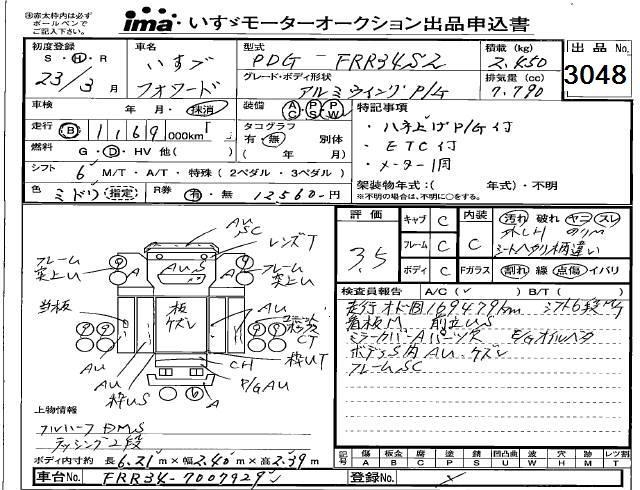 ※赤太枠内を
ボールペンで
ご記入下さい。
ima いすゞモーターオークション出品申込書
初度登録 S・H・R 23/3月
車名 いすゞ フォワード
型式 PDG-FRR34S2
積載(kg) 2.450
出品No. 3048
グレード・ボディ形状 アルミウイング P/G
排気量(cc) 7.790
車検 年・月・抹消
装備 AC・PS・PW
特記事項
・ハネ上げP/G付
・ETC付
・メーター1周
走行 B 1169 000km
タコグラフ 有・無 別体 ( 年 月)
燃料 G・D・HV 他( )
シフト 6 M/T・A/T・特殊(2ペダル・3ペダル)
架装物年式:( 年式)・不明
※不明の場合は、不明に○をする。
色 ミドリ 指定
R券 有・無 12560-円
評価 3.5
キャブ C
フレーム C
ボディ C
内装 C
Fガラス
汚れ 破れ ヤコ スレ
シートヘタリ柄違い
割れ 線 点傷 イバリ
検査員報告 A/C(✓) B/T( )
走行オド回1169479km シフト6段M/T
看板M
ミラーカバーAパーツ欠 E/Gオイルヘタ
ボデーS内AU、ケズレ
フレームSC
AU
SC
レンズT
フレーム
突上U
A
AU、S
A
フレーム
突上U
当板
板
ケズレ
AU
CT
枠UT
AU
AU
枠US
CH
P/GAU
A
上物情報
ラッシング2段
ボディ内寸約 長6.21m×幅2.40m×高2.39m
記号 傷A 板金B 腐C 塗P 錆S 凹凸曲U 波W 穴H 跡M レツ割T
車台No. FRR34-7007929
登録No.